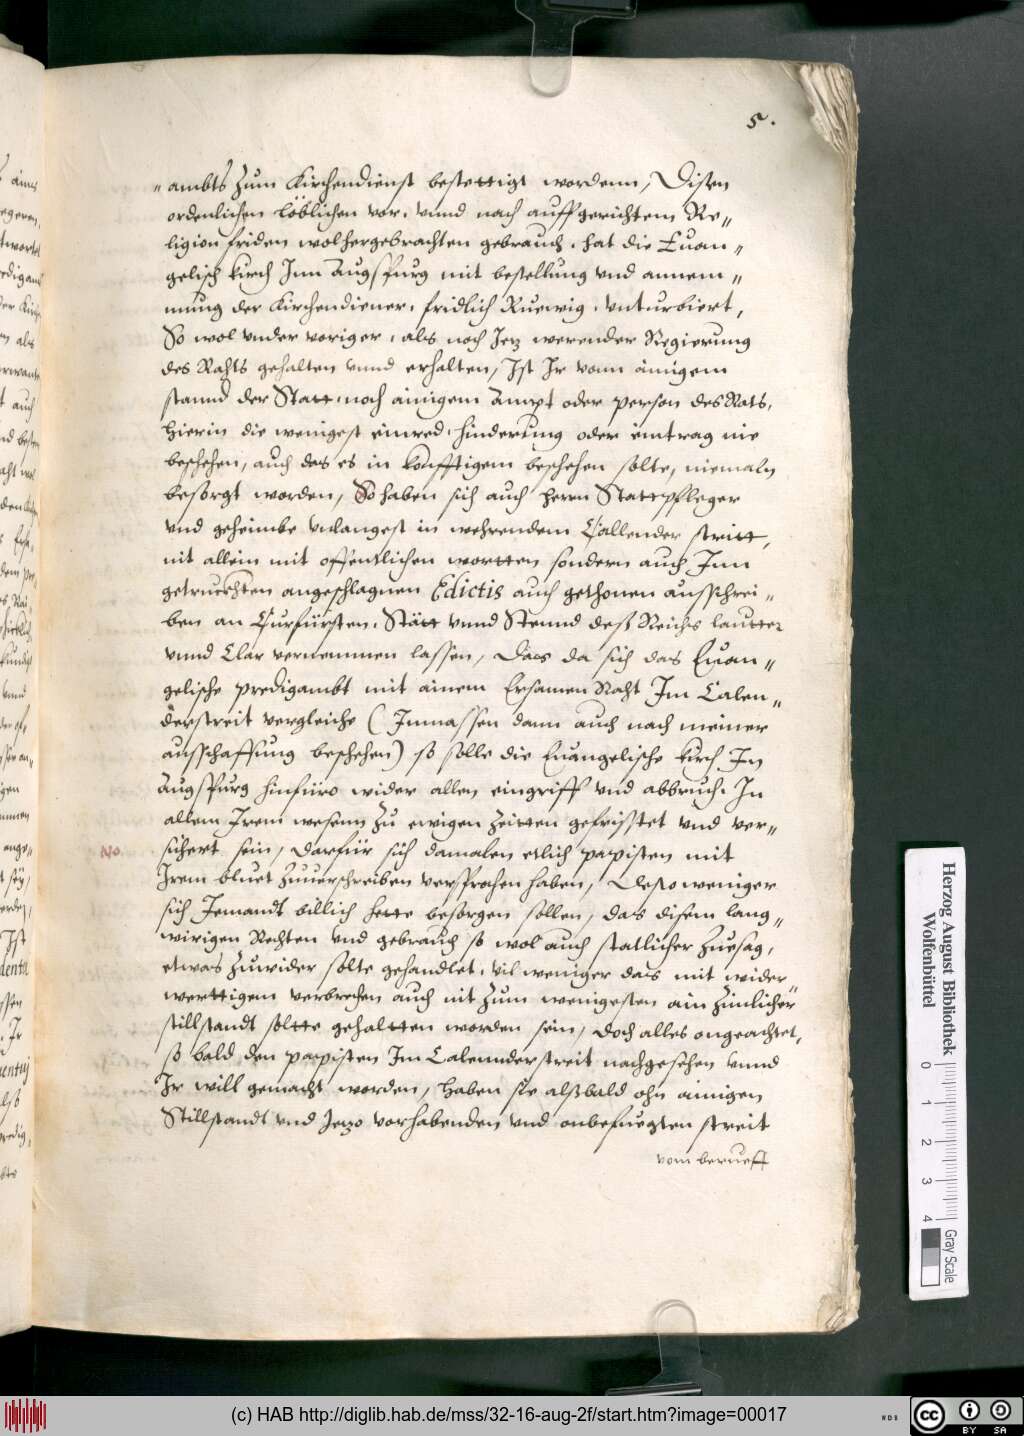 5.
„ ambts zum Kirchendienst bestettigt wordenn, Disen
ordenlichen löblichen vor, vnnd nach auffgerichtem Re„
ligion friden wolhergebrachten gebrauch, hat die Euan„
gelisch kirch Jnn Augspurg mit bestellung vnd annem„
mung der Kirchendiener, fridlich Ruewig, vnturbiert,
So wol vnder voriger, als noch Jez werender Regierung
des Rahts gehalten vnnd erhalten, Jst Jr vonn ainigem
stannd der Statt, noch ainigem Ampt oder person des Rats,
hierin die wenigest einred, hinderung oder eintrag nie
beschehen, auch das es in konfftigem beschehen solte, niemaln
besorgt worden, So haben sich auch herrn Stattpfleger
vnd geheimbe vnlangest in wehrendem Callender stritt,
nit allein mit offentlichen wortten sondern auch Jnn
getruckhten angeschlagnen Edictis auch gethonen ausschrei„
ben an Curfürsten, Stätt vnnd Stennd deß Reichs lautter
vnnd Clar vernemmen lassen, Das da sich das Euan„
gelische predigambt mit ainem Ersamen Raht Jm Calen„
derstreit vergleiche (Jnmassen dann auch nach meiner
ausschaffung beschehen) so solle die Euangelische kirch Jn
Augspurg hinfüro wider allen eingriff vnd abbruch, Jn
allem Jrem wesenn zu ewigen Zeitten gefristet vnd ver„
No. sichert sein, Darfür sich damalen etlich papisten mit
Jrem bluet Zuuerschreiben versprochen haben, Desto weniger
sich Jemandt billich hette besorgen sollen, das disem lang„
wirigen Rechten vnd gebrauch so wol auch statlicher Zuesag,
etwas Zuwider solte gehandlet, vil weniger das mit wider„
werttigem verbrechen auch nit Zum wenigesten ain Zimlicher
stillstandt soltte gehaltten worden sein, Doch alles ongeachtet,
so bald den papisten Jm Calennderstreit nachgesehen vnnd
Jr will gemacht worden, haben sie alßbald ohn ainigen
Stillstandt vnd Jezo vorhabenden vnd onbefuegten streit
vom berueff
Herzog August Bibliothek
Wolfenbüttel
0 1 2 3 4
Gray Scale
(c) HAB http://diglib.hab.de/mss/32-16-aug-2f/start.htm?image=00017
WDB
cc BY SA